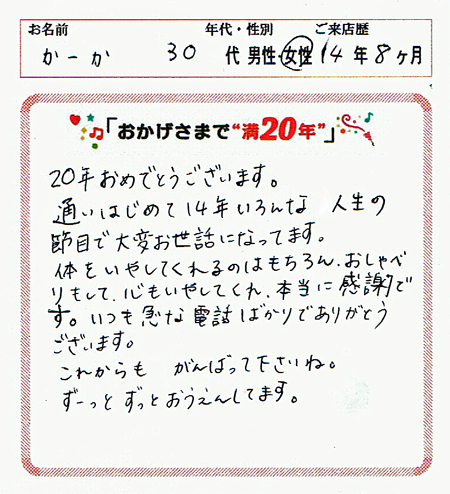 お名前 年代・性別 ご来店歴
かーか 30代 男性・女性 14年8ヶ月
「おかげさまで“満20年”」
20年おめでとうございます。
通いはじめて14年いろんな 人生の
節目で大変お世話になってます。
体をいやしてくれるのはもちろん、おしゃべ
りもして、心もいやしてくれ、本当に感謝で
す。いつも急な電話ばかりでありがとう
ございます。
これからも がんばって下さいね。
ずーっとずっとおうえんしてます。